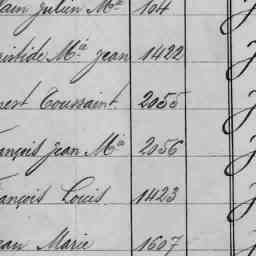 ain Julien Mª 104
ristide Mª Jean 1422
nest Toussaint 2055
ançois Jean Mª 2056
ançois Louis 1423
ean Marie 1607